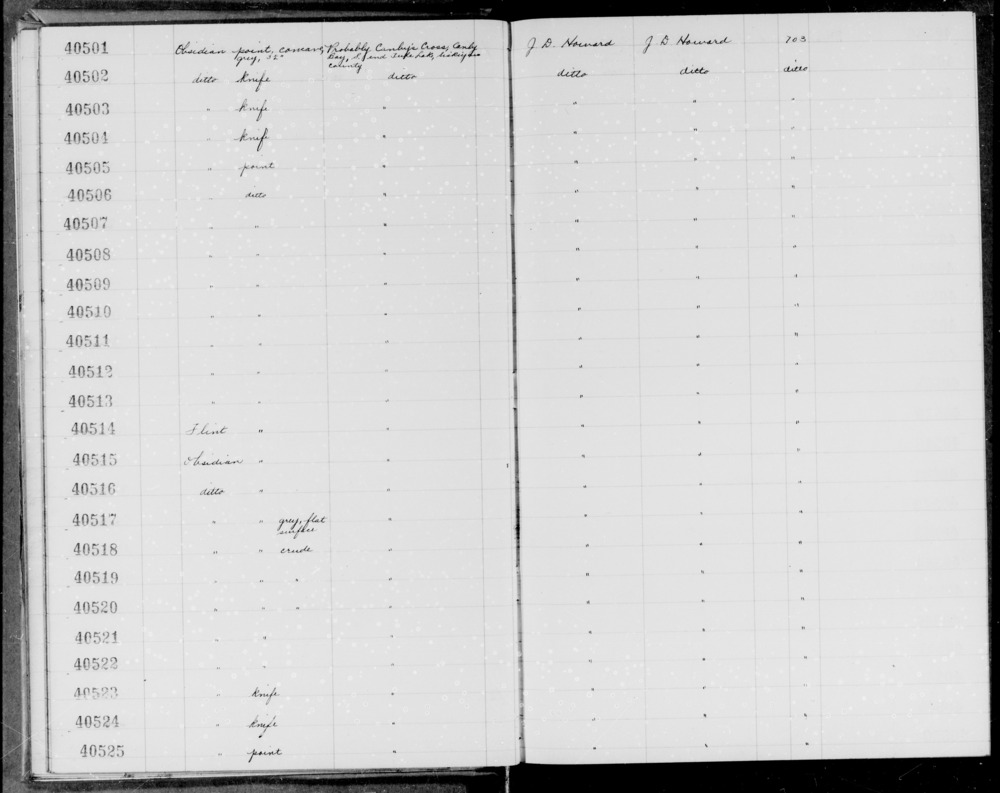 40501 Obsidian point, concave, Probably Canby's Cross, Canby J. D. Howard J. D. Howard 703
grey, Bay, S. end Tule Lake, Siskiyou
county
40502 ditto knife ditto ditto ditto ditto
40503 " knife " " " "
40504 " knife " " " "
40505 " point " " " "
40506 ditto " " " "
40507 " " " " " "
40508 " " " " " "
40509 " " " " " "
40510 " " " " " "
40511 " " " " " "
40512 " " " " " "
40513 " " " " " "
40514 Flint " " " " "
40515 Obsidian " " " " "
40516 ditto " " " " "
40517 " " grey, flat " " " "
surface
40518 " " crude " " " "
40519 " " " " " " "
40520 " " " " " " "
40521 " " " " " "
40522 " " " " " "
40523 " knife " " " "
40524 " knife " " " "
40525 " point " " " "